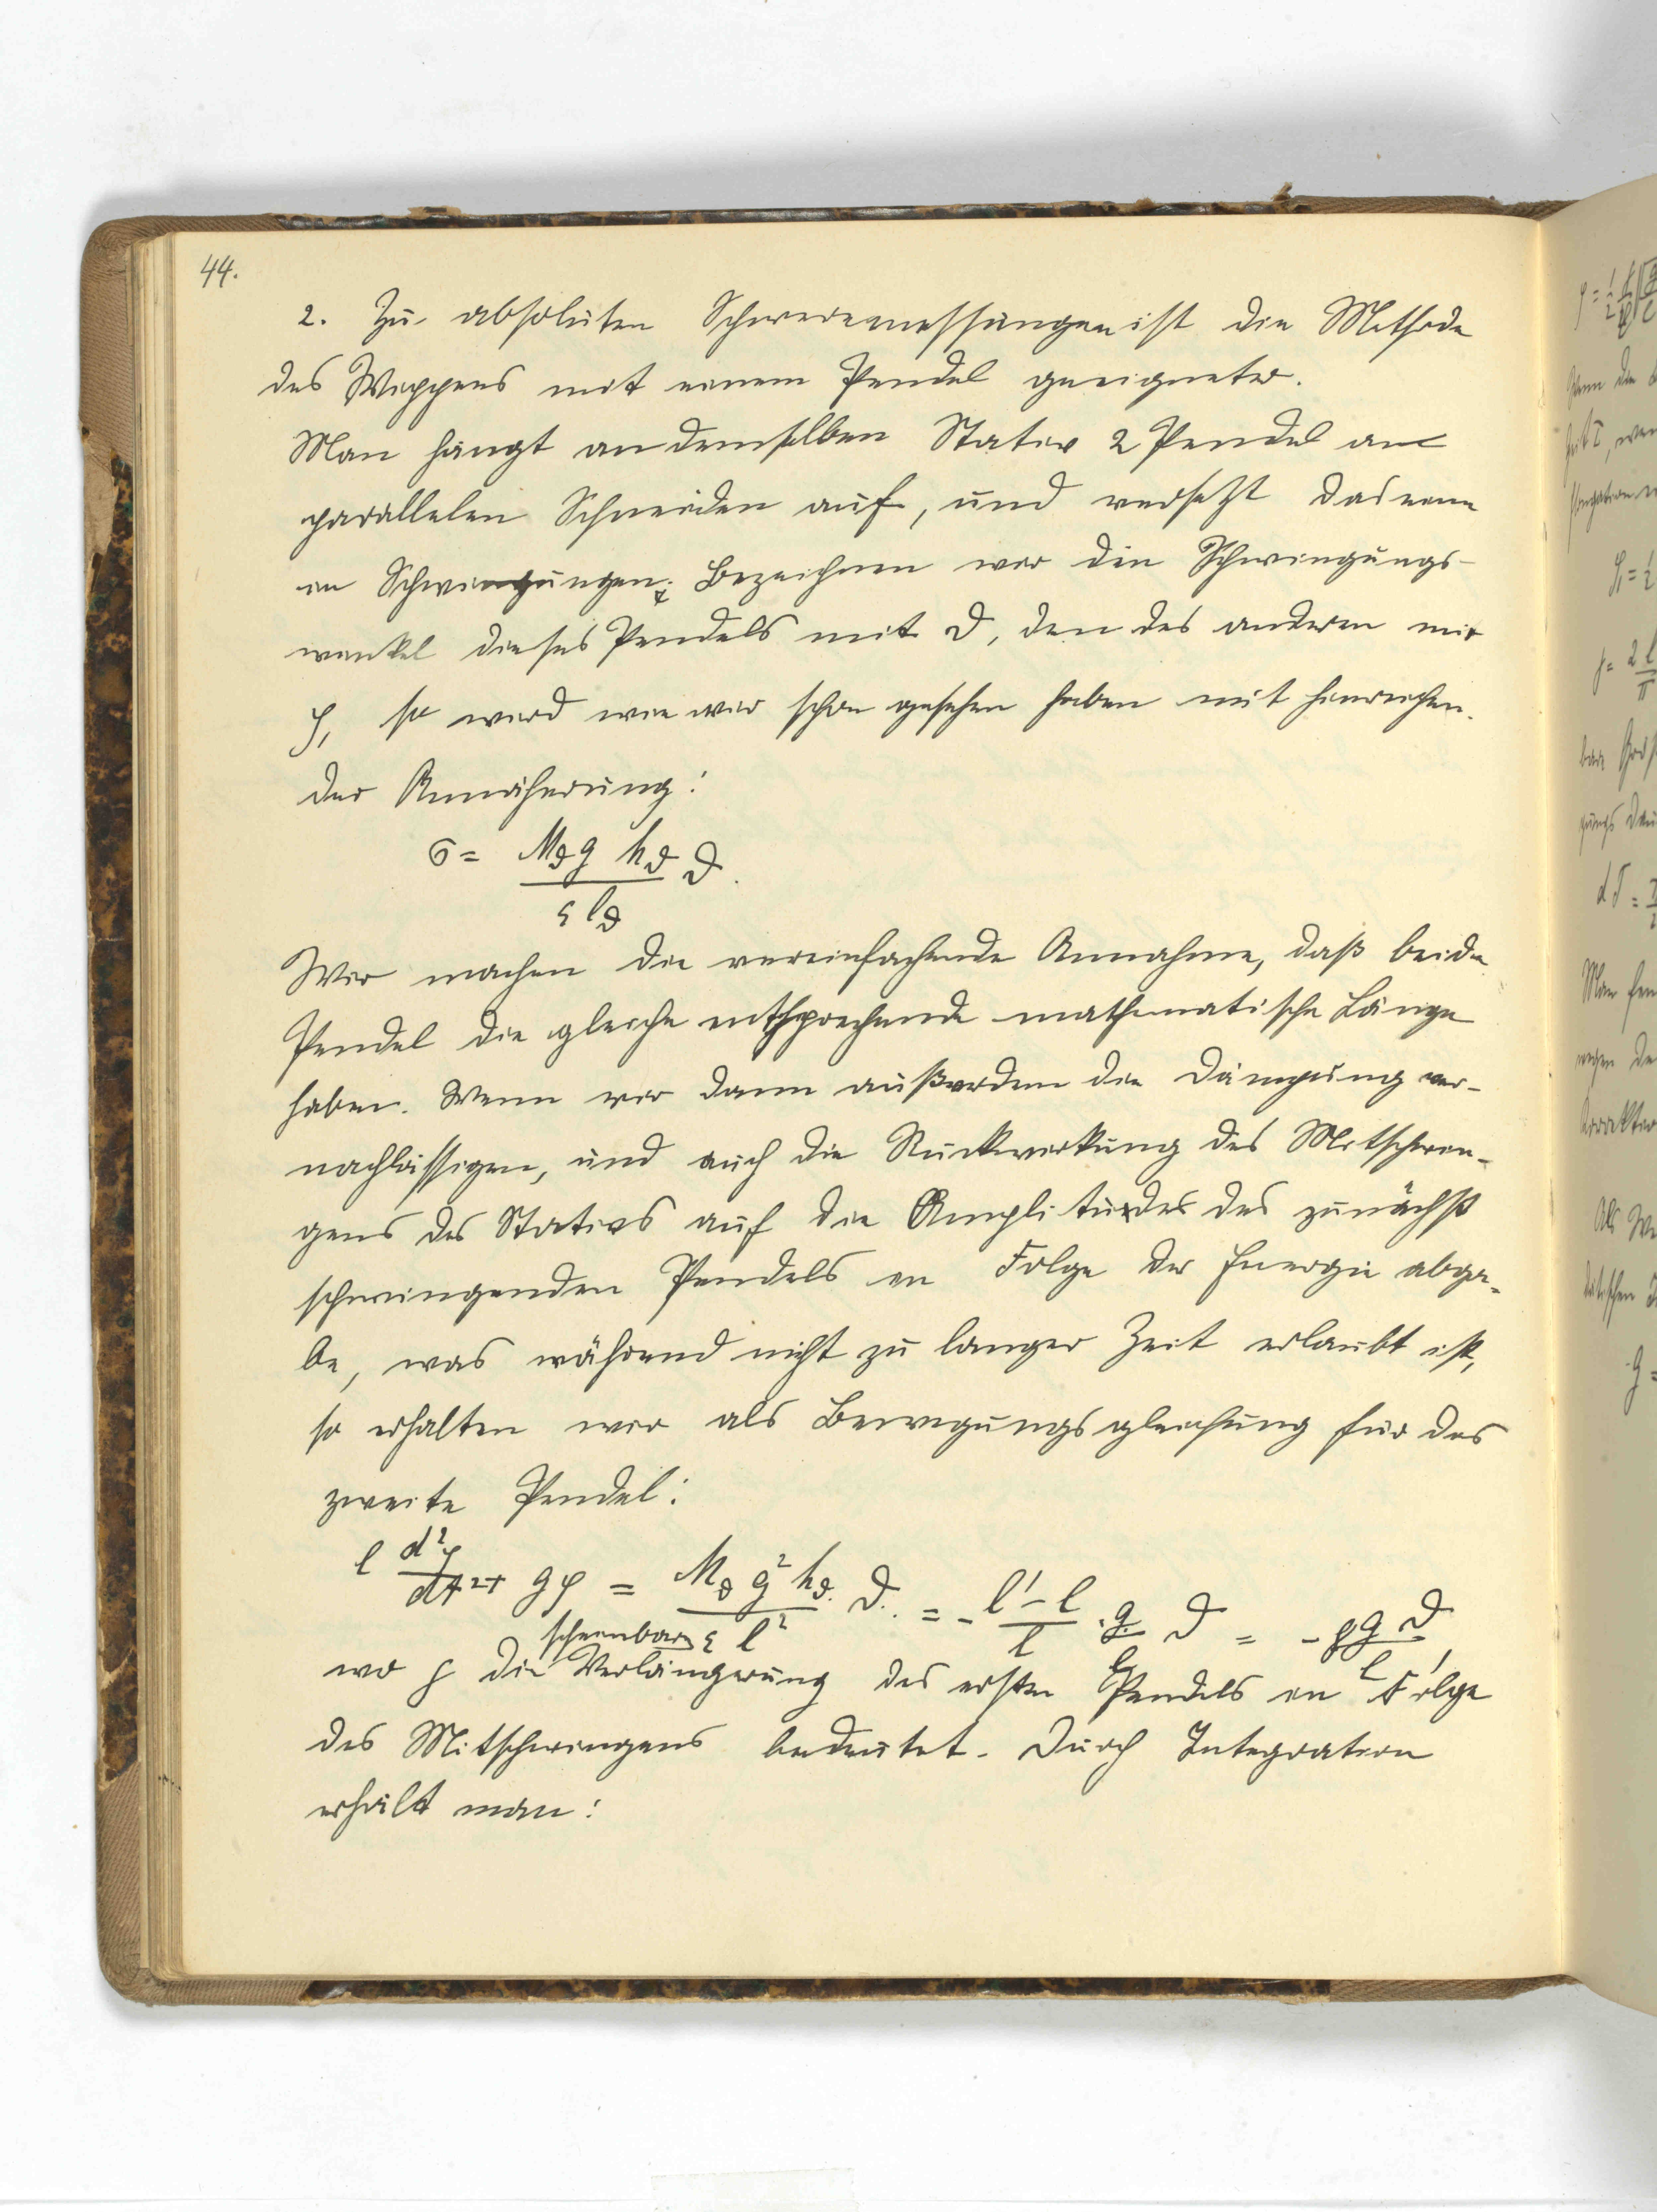 44.
2. Zu absoluten Schweremessungen ist die Methode
des Wippens mit einem Pendel geeigneter.
Man hängt an demselben Stativ 2 Pendel an
parallelen Schneiden auf, und versetzt das eine
in Schwingungen. Bezeichnen wir den Schwingungs-
winkel dieses Pendels mit ϑ, den des anderen mit
φ, so wird wie wir schon gesehen haben mit hinreichen-
der Annäherung:
σ = M_ϑ g h_ϑ / ε l_ϑ ϑ.
Wir machen die vereinfachende Annahme, daß beide
Pendel die gleiche entsprechende mathematische Länge
haben. Wenn wir dann außerdem die Dämpfung ver-
nachlässigen, und auch die Rückwirkung des Mitschwin-
gens des Stativs auf die Amplitude des zunächst
schwingenden Pendels in Folge der Energie abga-
be, was während nicht zu langer Zeit erlaubt ist,
so erhalten wir als Bewegungsgleichung für das
zweite Pendel:
l d²φ/dt² + gφ = M_ϑ g² h_ϑ / ε l² ϑ. = - l'-l / l · g / l ϑ = - ρ g ϑ / l,
scheinbare
wo ρ die Verlängerung des ersten Pendels in Folge
des Mitschwingens bedeutet. Durch Integration
erhält man: